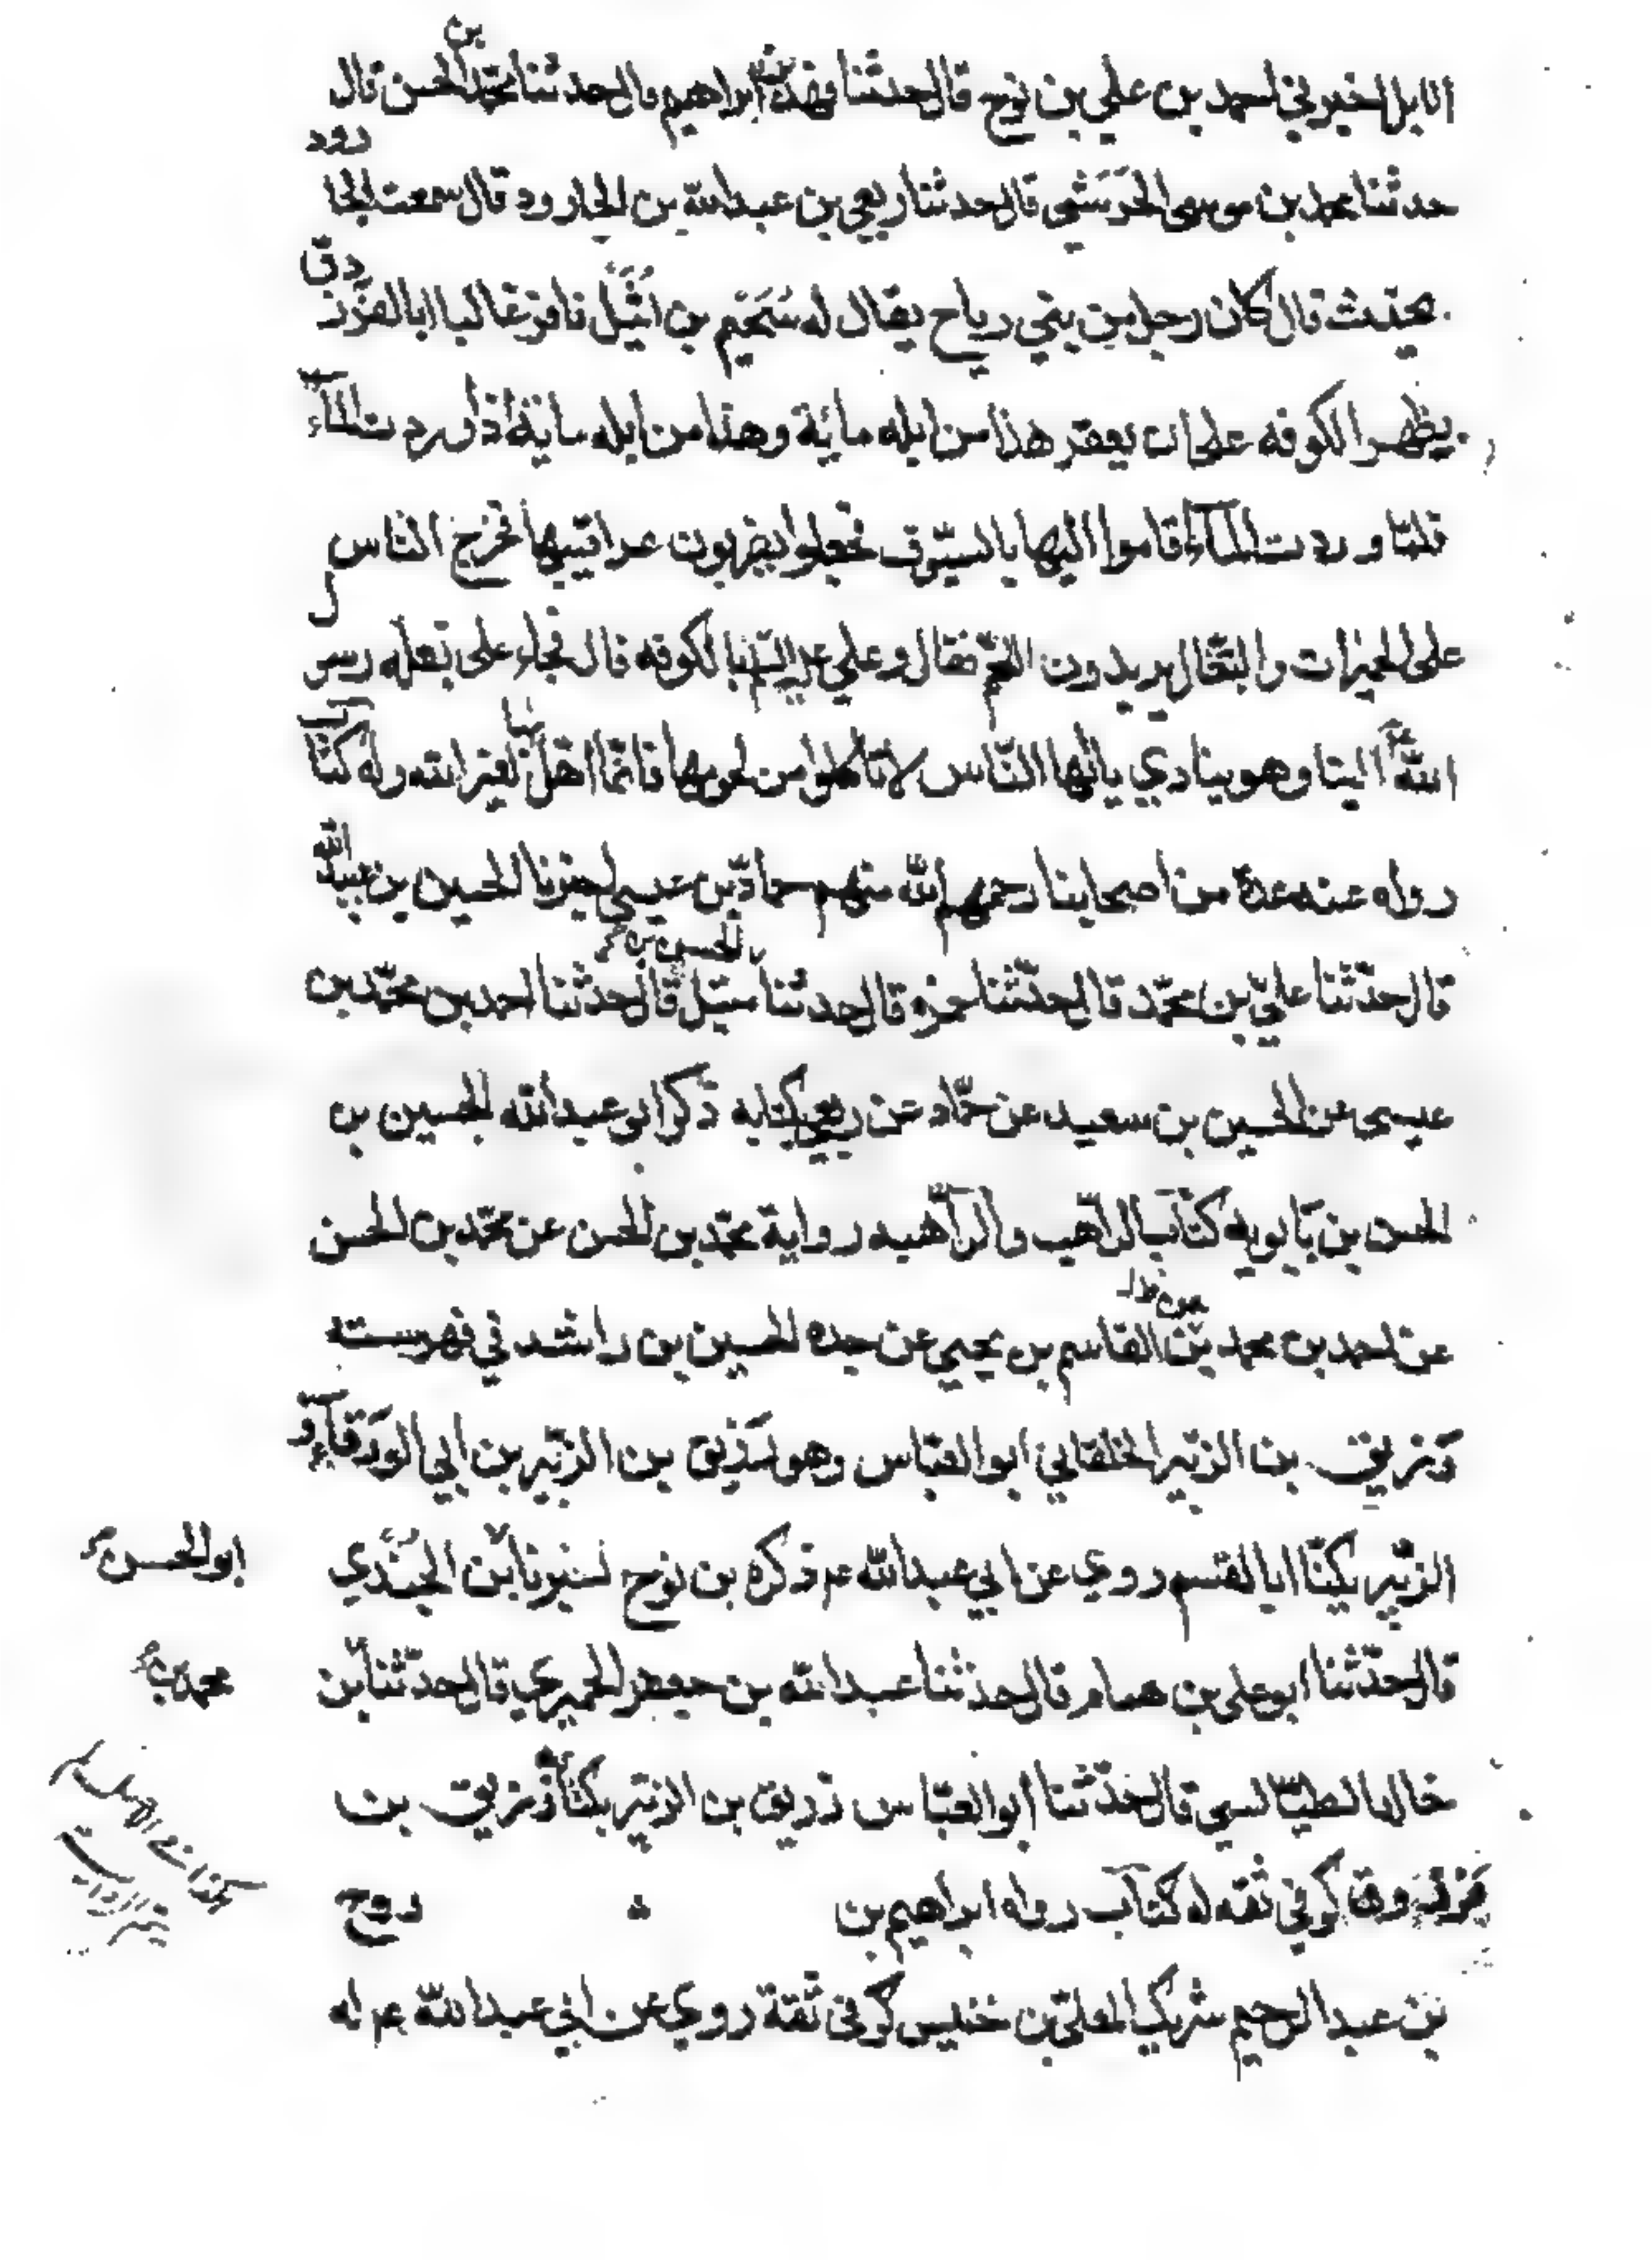 الابل اخبرني احمد بن علي بن نوح قال حدثنا فهد بن ابراهيم قال حدثنا محمد بن الحسن قال
حدثنا محمد بن موسى الحرشي قال حدثنا ربعي بن عبدالله بن الجارود قال سمعت الجارود
يحدث قال كان رجل من بني رياح يقال له سحيم بن اثيل نافر غالبا ابا الفرزدق
بظهر الكوفه على ان يعقر هذا من ابله مائية وهذا من ابله مائية اذا وردت المآء
فلمّا وردت المآء قاموا اليها بالسيوف فجعلوا يضربون عراقيبها فخرج الناس
على الحميرات والبغال يريدون اللحم قال وعلي عليه السلم بالكوفه قال فجاء على بغله رسول
الله الينا وهو ينادي يا ايها النّاس لا تاكلوا من لحومها فانّما اهل بها لغير الله وله كتاب
رواه عنه عدة من اصحابنا رحمهم الله منهم حماد بن عيسى اخبرنا الحسين بن عبيد الله
قال حدّثنا علي بن محمّد قال حدّثنا حمزه قال حدثنا قال حدثنا احمد بن محمّد بن
الحسن بن
عيسى عن الحسين بن سعيد عن حمّاد عن ربعي بكتابه ذكر ابو عبدالله الحسين بن
الحسن بن بابويه كتاب الراهب والراهبه رواية محمّد بن الحسن عن محمّد بن الحسن
عن احمد بن محمد بن القاسم بن يحيى عن جده الحسين بن راشد في فهرسته
وزريق بن الزبير الخلقاني ابو العبّاس وهو زريق بن الزبير بن ابي الورقآء و
الزبير يكنّا ابا القسم روي عن ابي عبدالله عم ذكره بن نوح اخبرنا بن الجندي
ابو الحسن
قال حدّثنا ابو علي بن همام قال حدثنا عبدالله بن جعفر الحميري قال حدّثنا بن
محمد بن
خالد الطيالسي قال حدّثنا ابو العبّاس زريق بن الزبير بكتابه وزريق بن
مرزوق كوفي ثقه له كتاب رواه ابراهيم بن روح
بن عبد الرحيم شريك المعلى بن خنيس كوفي ثقة روي عن ابي عبدالله عم له